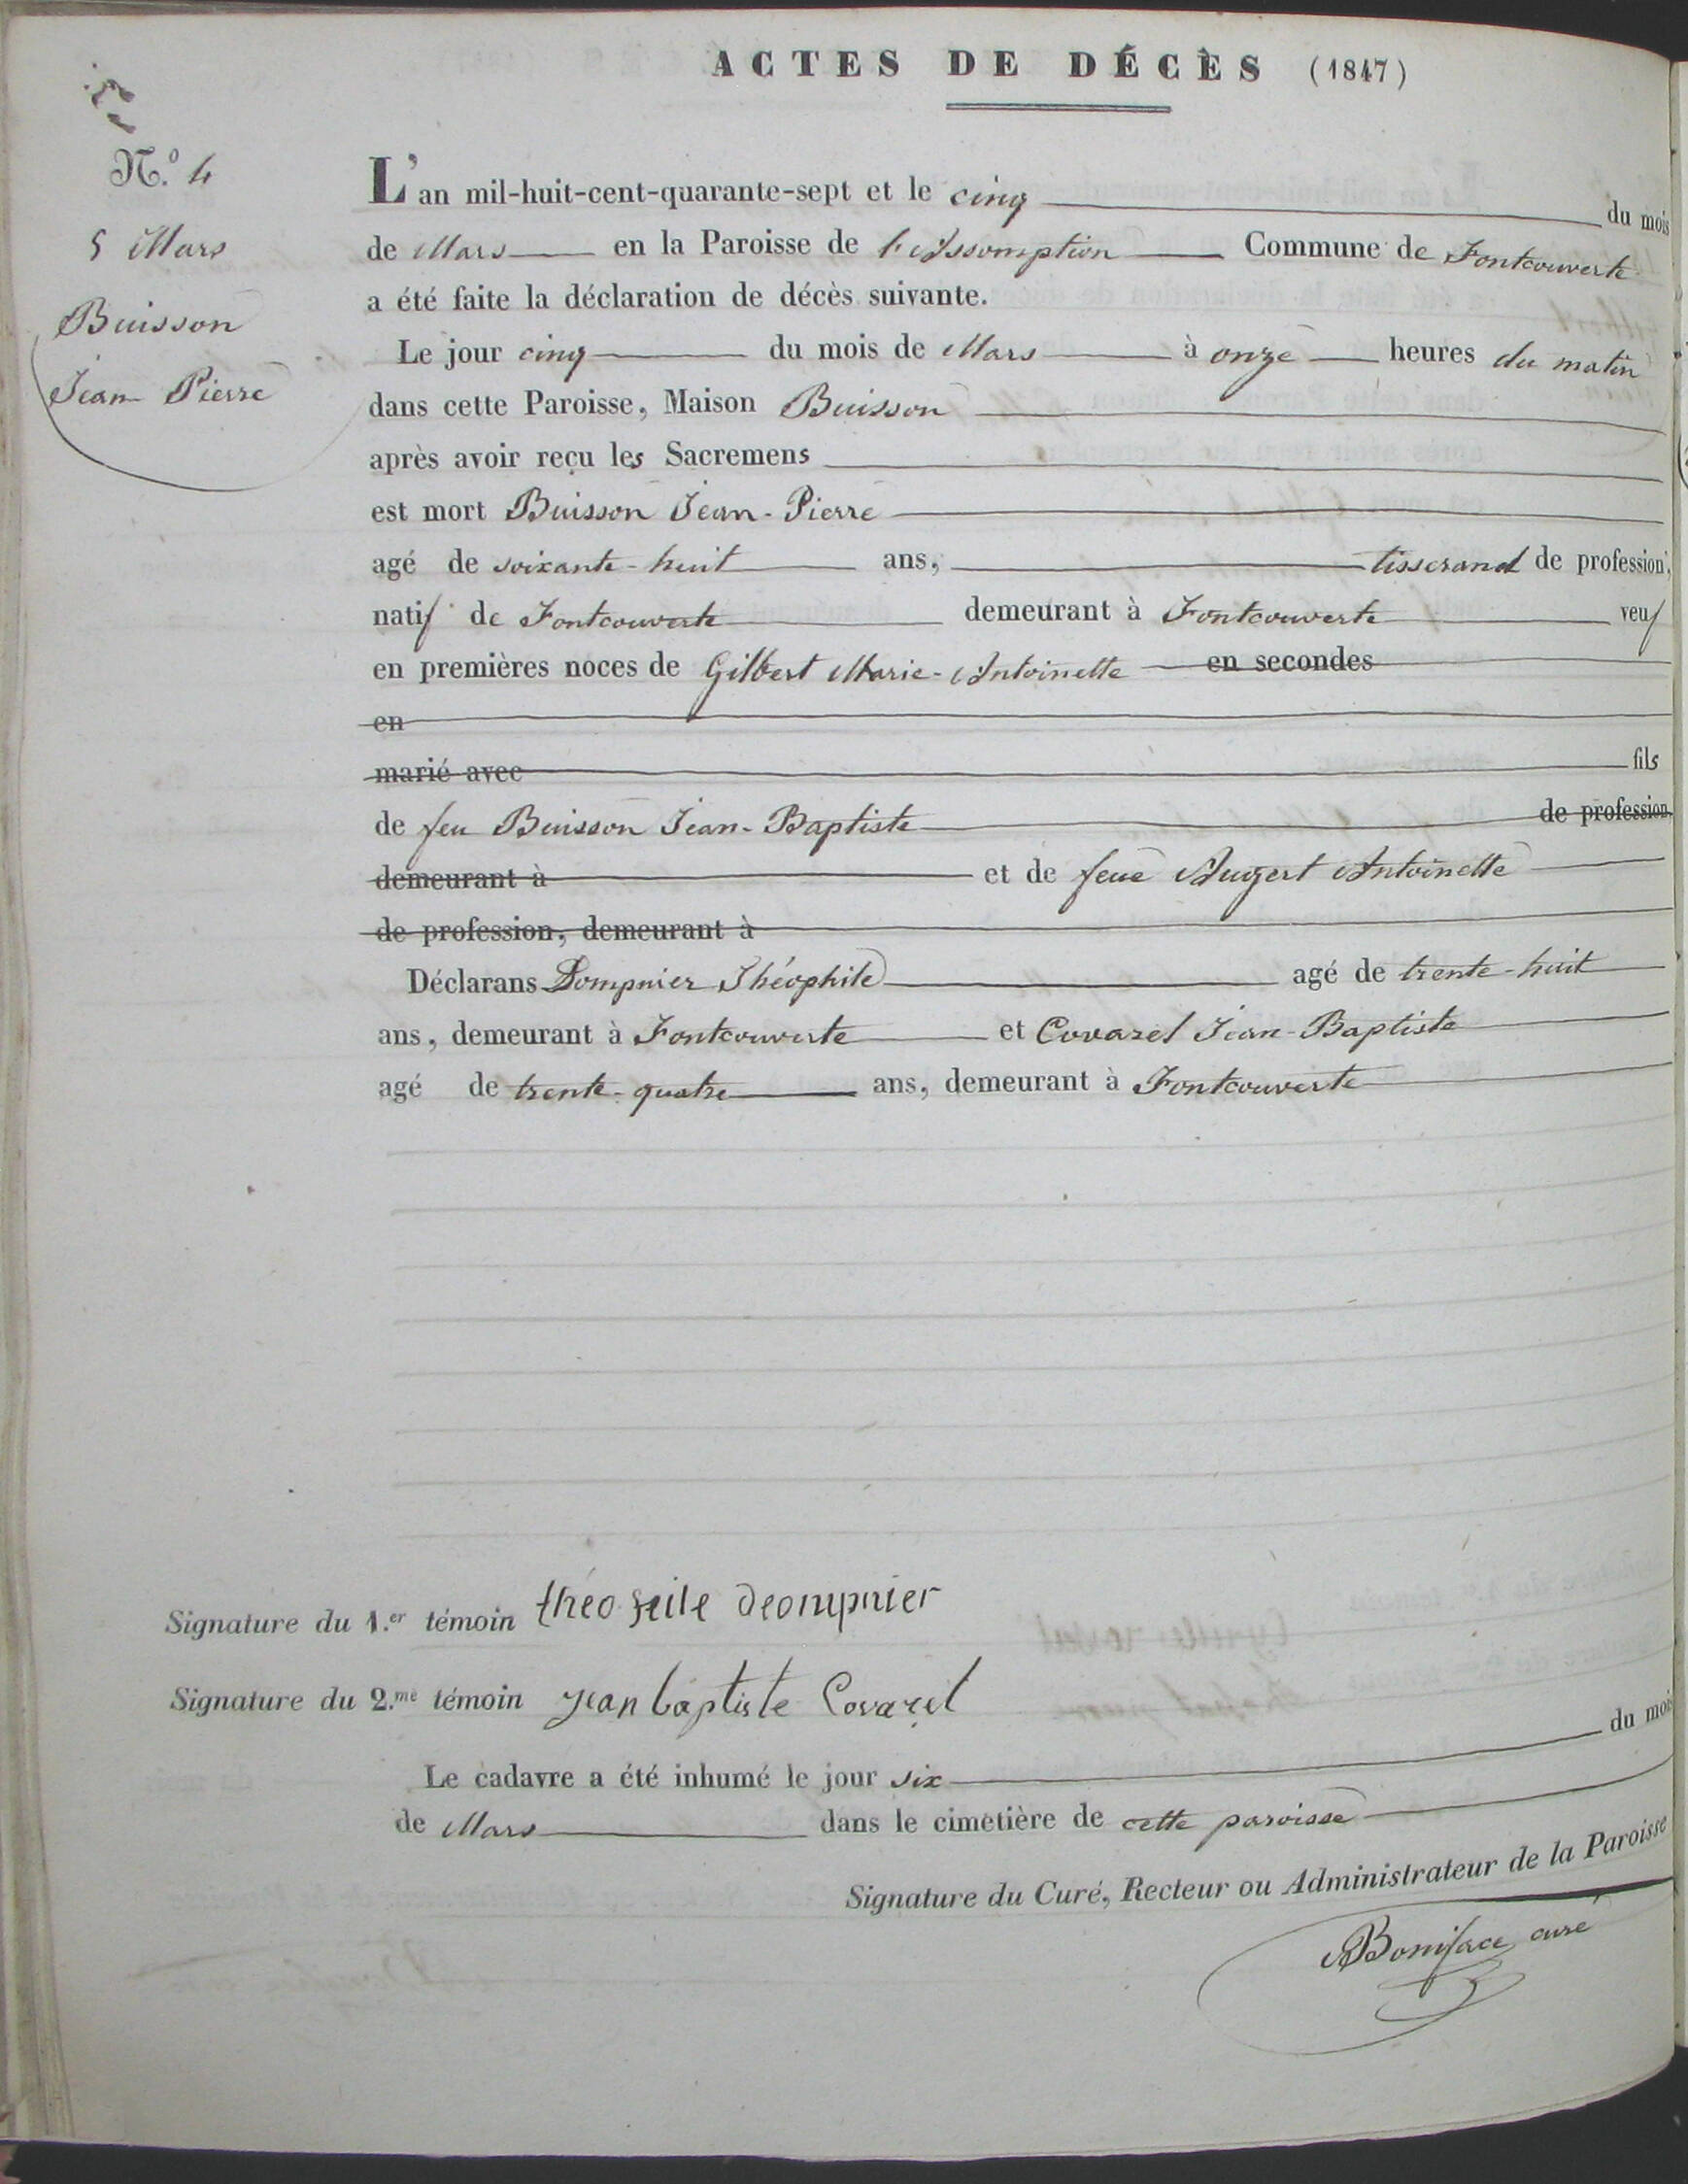 ACTES DE DÉCÈS (1847)
N.º 4
5 Mars
Buisson
Jean-Pierre
L'an mil-huit-cent-quarante-sept et le cinq du mois
de Mars en la Paroisse de l'Assomption Commune de Fontcouverte
a été faite la déclaration de décès suivante.
Le jour cinq du mois de Mars à onze heures du matin
dans cette Paroisse, Maison Buisson
après avoir reçu les Sacremens
est mort Buisson Jean-Pierre
agé de soixante-huit ans, tisserand de profession,
natif de Fontcouverte demeurant à Fontcouverte veuf
en premières noces de Gilbert Marie-Antoinette en secondes
en
marié avec fils
de feu Buisson Jean-Baptiste de profession,
demeurant à et de feue Augert Antoinette
de profession, demeurant à
Déclarans Dompnier Théophile agé de trente-huit
ans, demeurant à Fontcouverte et Covarel Jean-Baptiste
agé de trente-quatre ans, demeurant à Fontcouverte
Signature du 1.er témoin théo feile deompnier
Signature du 2.me témoin jean baptiste Covarel
Le cadavre a été inhumé le jour six du mois
de Mars dans le cimetière de cette paroisse
Signature du Curé, Recteur ou Administrateur de la Paroisse
Boniface curé